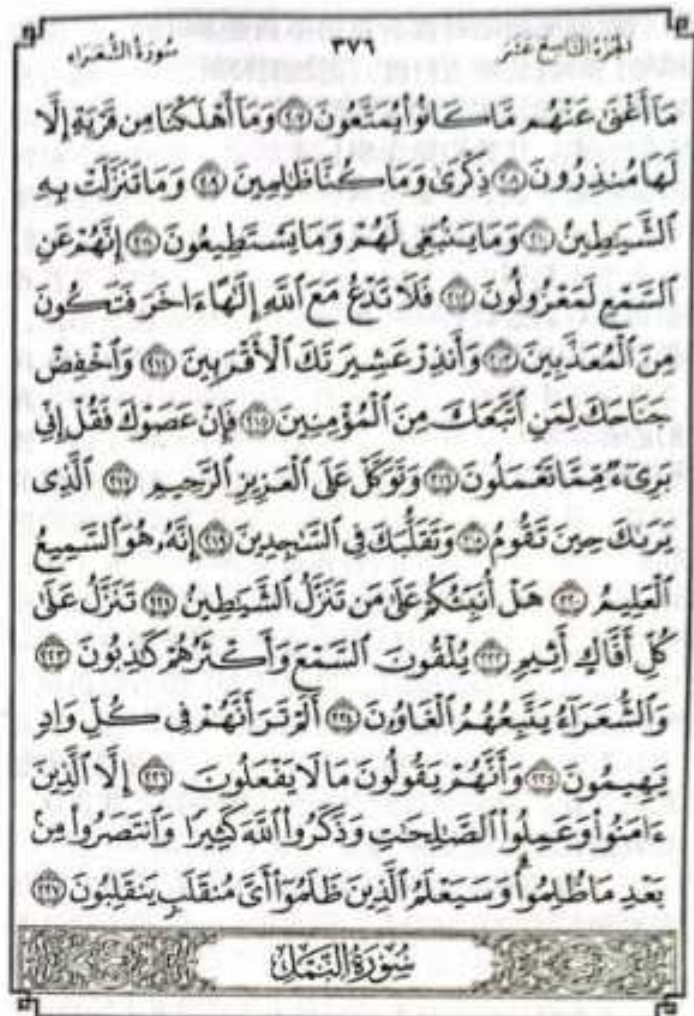 الجزء التاسع عشر ٣٧٦ سورة الشعراء
مَآ أَغْنَىٰ عَنْهُم مَّا كَانُوا۟ يُمَتَّعُونَ ٢٠٧ وَمَآ أَهْلَكْنَا مِن قَرْيَةٍ إِلَّا
لَهَا مُنذِرُونَ ٢٠٨ ذِكْرَىٰ وَمَا كُنَّا ظَٰلِمِينَ ٢٠٩ وَمَا تَنَزَّلَتْ بِهِ
ٱلشَّيَٰطِينُ ٢١٠ وَمَا يَنۢبَغِى لَهُمْ وَمَا يَسْتَطِيعُونَ ٢١١ إِنَّهُمْ عَنِ
ٱلسَّمْعِ لَمَعْزُولُونَ ٢١٢ فَلَا تَدْعُ مَعَ ٱللَّهِ إِلَٰهًا ءَاخَرَ فَتَكُونَ
مِنَ ٱلْمُعَذَّبِينَ ٢١٣ وَأَنذِرْ عَشِيرَتَكَ ٱلْأَقْرَبِينَ ٢١٤ وَٱخْفِضْ
جَنَاحَكَ لِمَنِ ٱتَّبَعَكَ مِنَ ٱلْمُؤْمِنِينَ ٢١٥ فَإِنْ عَصَوْكَ فَقُلْ إِنِّى
بَرِىٓءٌ مِّمَّا تَعْمَلُونَ ٢١٦ وَتَوَكَّلْ عَلَى ٱلْعَزِيزِ ٱلرَّحِيمِ ٢١٧ ٱلَّذِى
يَرَىٰكَ حِينَ تَقُومُ ٢١٨ وَتَقَلُّبَكَ فِى ٱلسَّٰجِدِينَ ٢١٩ إِنَّهُۥ هُوَ ٱلسَّمِيعُ
ٱلْعَلِيمُ ٢٢٠ هَلْ أُنَبِّئُكُمْ عَلَىٰ مَن تَنَزَّلُ ٱلشَّيَٰطِينُ ٢٢١ تَنَزَّلُ عَلَىٰ
كُلِّ أَفَّاكٍ أَثِيمٍ ٢٢٢ يُلْقُونَ ٱلسَّمْعَ وَأَكْثَرُهُمْ كَٰذِبُونَ ٢٢٣
وَٱلشُّعَرَآءُ يَتَّبِعُهُمُ ٱلْغَاوُۥنَ ٢٢٤ أَلَمْ تَرَ أَنَّهُمْ فِى كُلِّ وَادٍ
يَهِيمُونَ ٢٢٥ وَأَنَّهُمْ يَقُولُونَ مَا لَا يَفْعَلُونَ ٢٢٦ إِلَّا ٱلَّذِينَ
ءَامَنُوا۟ وَعَمِلُوا۟ ٱلصَّٰلِحَٰتِ وَذَكَرُوا۟ ٱللَّهَ كَثِيرًا وَٱنتَصَرُوا۟ مِنۢ
بَعْدِ مَا ظُلِمُوا۟ وَسَيَعْلَمُ ٱلَّذِينَ ظَلَمُوٓا۟ أَىَّ مُنقَلَبٍ يَنقَلِبُونَ ٢٢٧
سُورَةُ النَّمْلِ